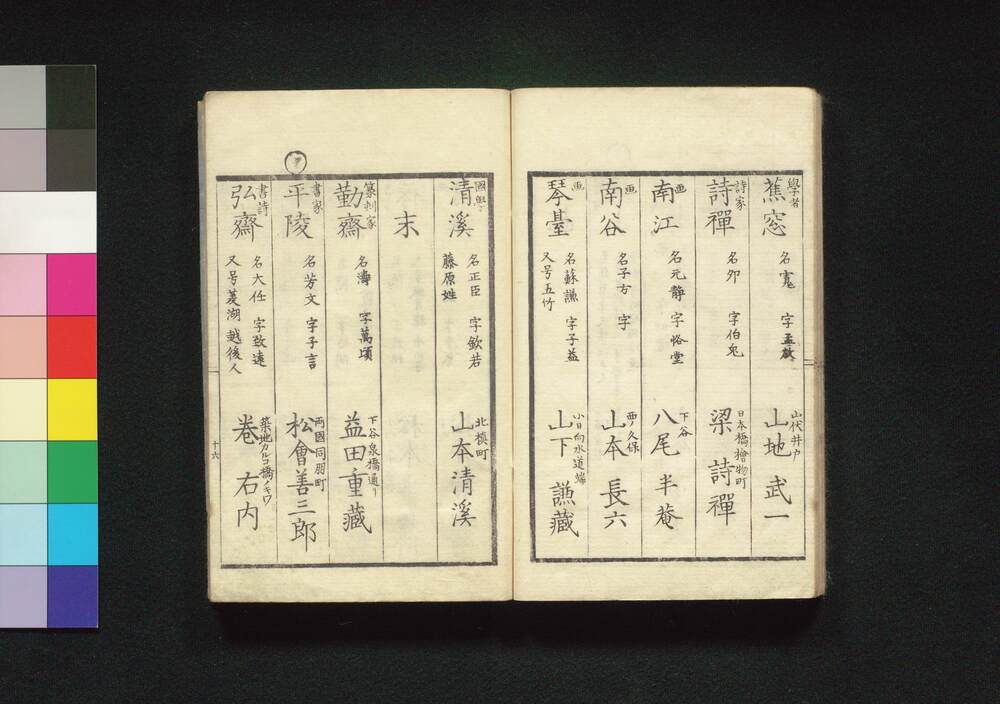 學者
蕉窓
名寛 字孟敬
山伏井戸
山地武一
詩家
詩禪
名卯 字伯兎
日本橋檜物町
梁詩禪
画
南江
名元靜 字恪堂
下谷
八尾半菴
画
南谷
名子方 字
西ノ久保
山本長六
画
琴臺
名蘇謙 字子益
又号五竹
小日向水道端
山下謙藏
國學
清溪
名正臣 字欽若
藤原姓
北槇町
山本清溪
末
篆刻家
勤齋
名濤 字萬頃
下谷泉橋通リ
益田重藏
書家
平陵
名芳文 字子言
両國同朋町
松會善三郎
書詩
弘齋
名大任 字致遠
又号菱湖 越後人
築地カルコ橋ノキワ
卷右内
十六